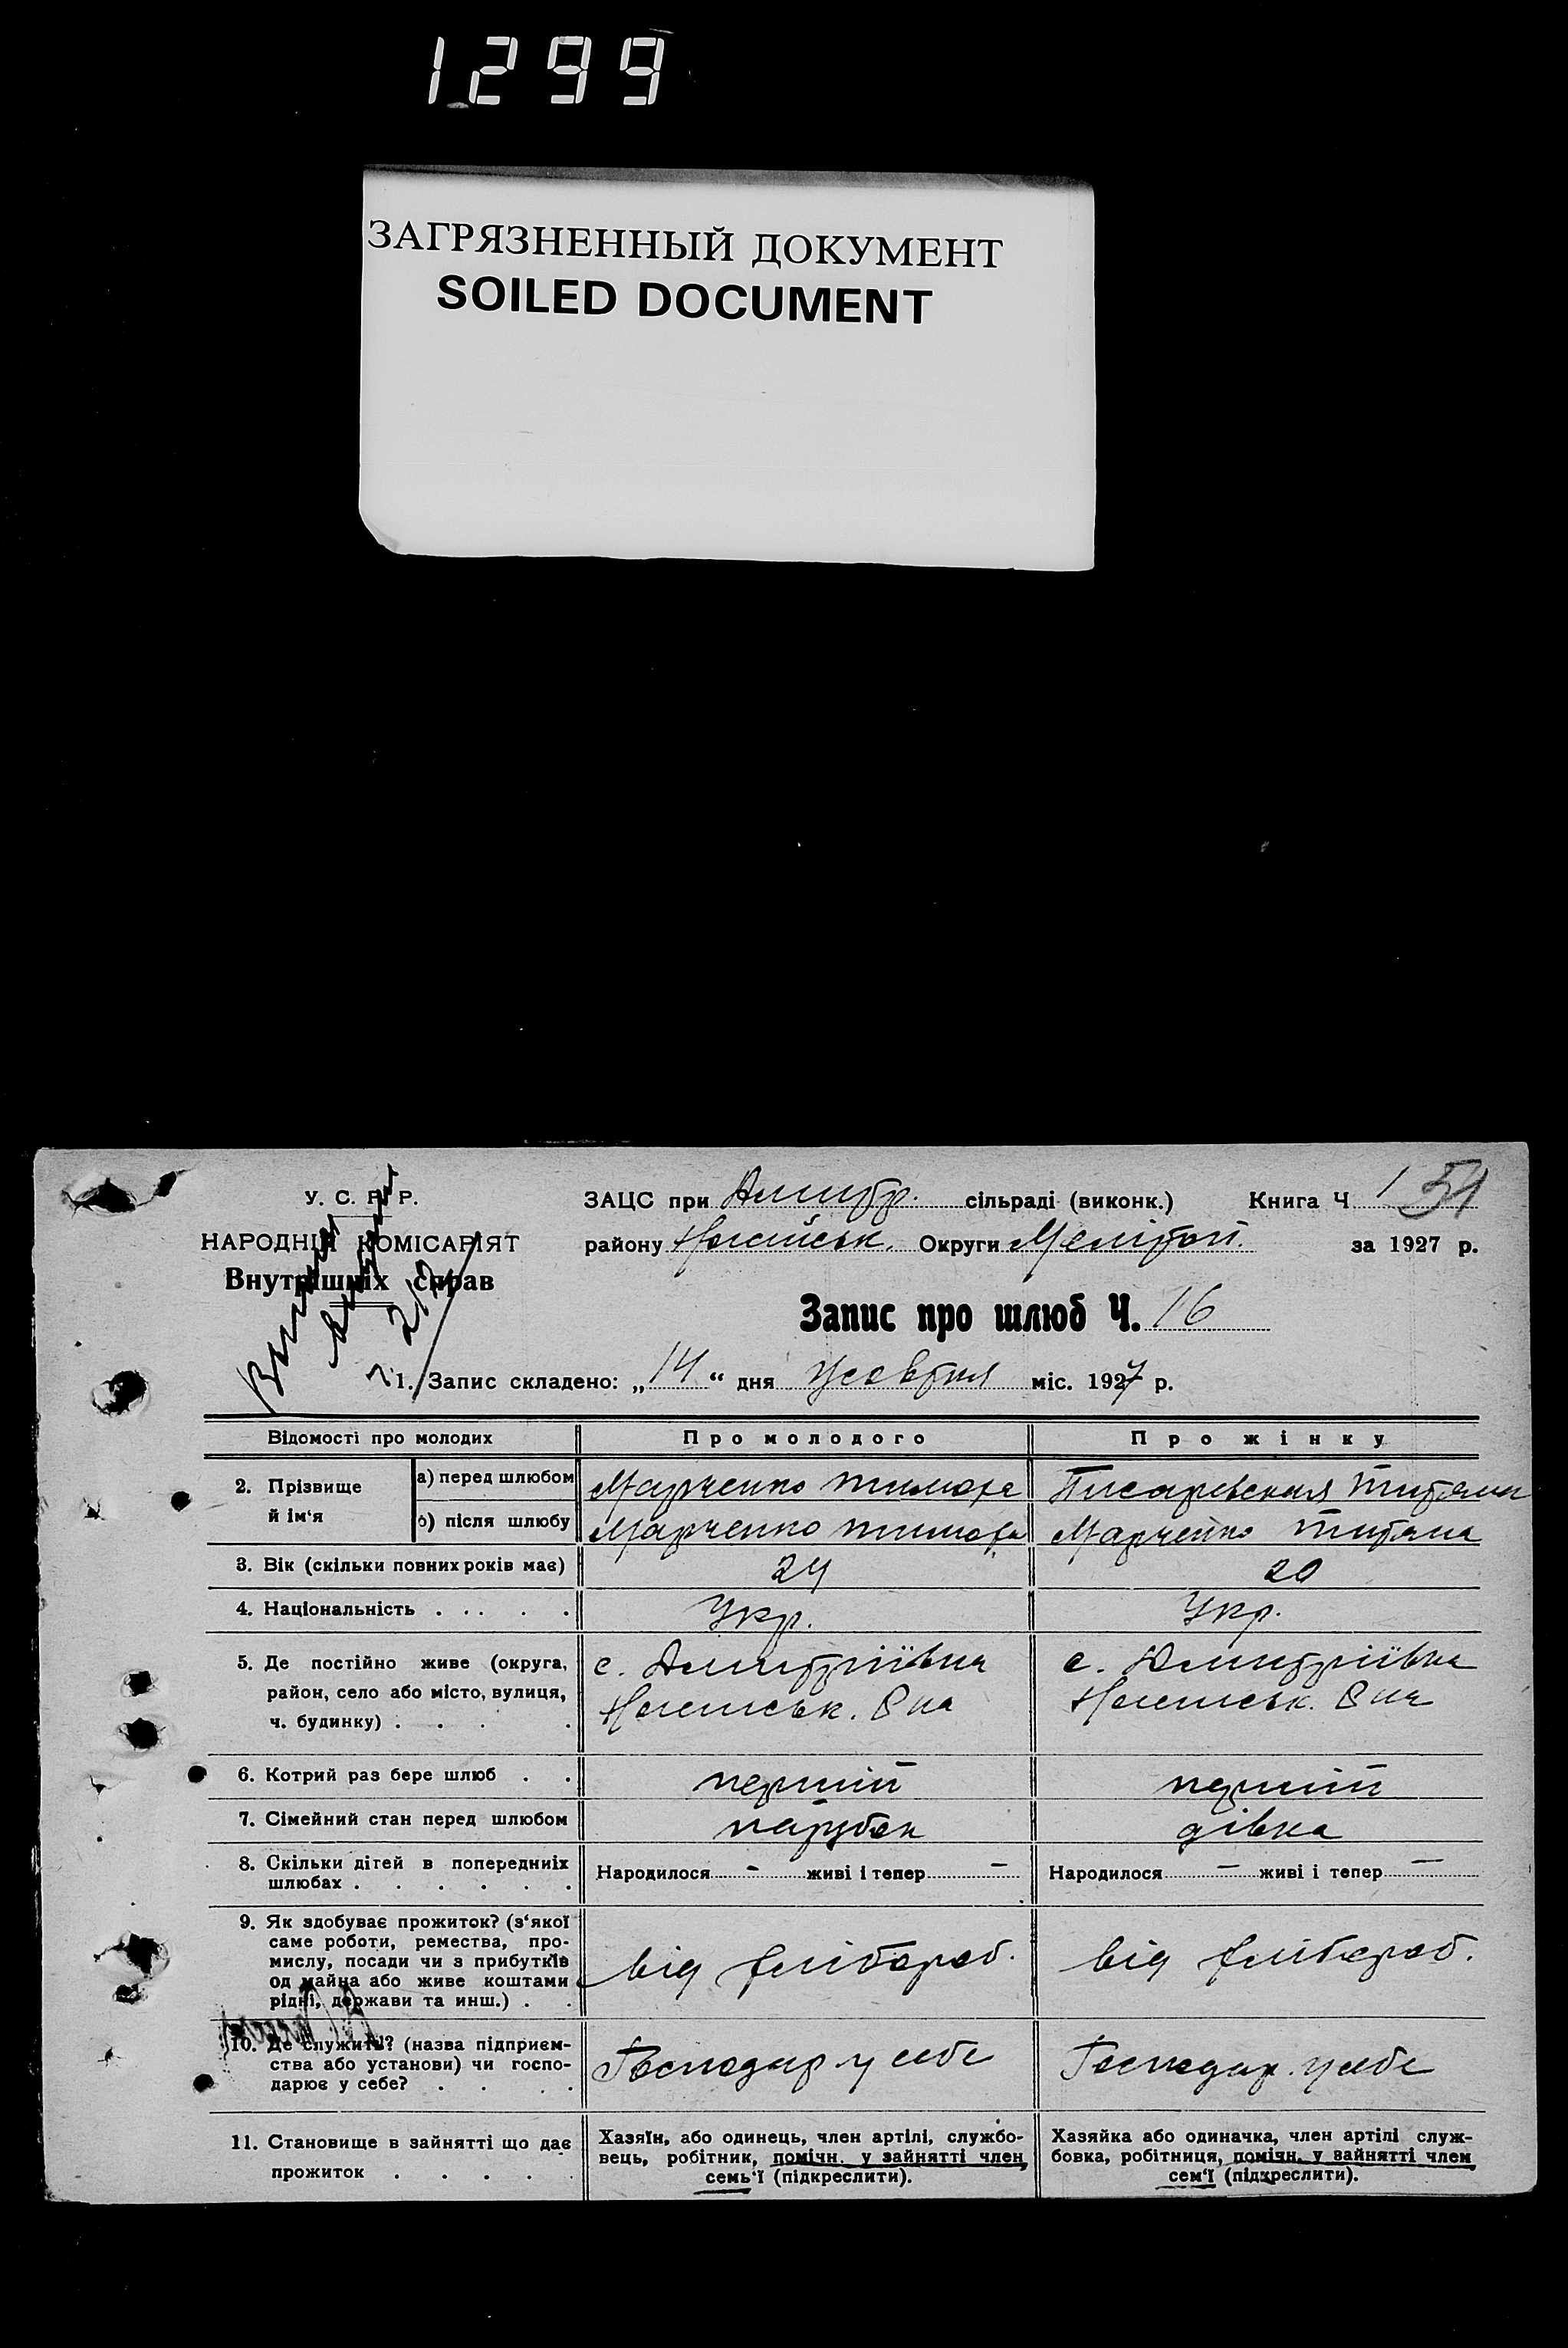 1299
ЗАГРЯЗНЕННЫЙ ДОКУМЕНТ
SOILED DOCUMENT
У. С. Р. Р.
НАРОДНІЙ КОМІСАРІЯТ
Внутрішніх справ
ЗАЦС при Дмитр. сільраді (виконк.) Книга Ч 1 51
району Ногайськ. Округи Мелітоп. за 1927 р.
Запис про шлюб Ч. 16
1. Запис складено: „14“ дня Жовтня міс. 1927 р.
Відомості про молодих Про молодого Про жінку
2. Прізвище й ім'я
а) перед шлюбом Марченко Тимоха Писаревская Титяна
б) після шлюбу Марченко Тимоха Марченко Титяна
3. Вік (скільки повних років має) 24 20
4. Національність . . . . . Укр. Укр.
5. Де постійно живе (округа, район, село або місто, вулиця, ч. будинку) . . . .
с. Дмитріївка с. Дмитріївка
Ногайськ. Р на Ногайськ. Р на
6. Котрий раз бере шлюб . . перший перший
7. Сімейний стан перед шлюбом парубок дівка
8. Скільки дітей в попередниіх шлюбах . . . . . .
Народилося - живі і тепер - Народилося - живі і тепер -
9. Як здобуває прожиток? (з'якої
саме роботи, ремества, про-
мислу, посади чи з прибутків
од майна або живе коштами
рідні, держави та инш.) . .
від хлібороб. від хлібороб.
10. Де служить? (назва підприєм-
ства або установи) чи госпо-
дарює у себе? . . . .
Господар у себе Господар. у себе
11. Становище в зайнятті що дає
прожиток . . . . .
Хазяїн, або одинець, член артілі, службо-
вець, робітник, помічн. у зайнятті член
семь'ї (підкреслити).
Хазяйка або одиначка, член артілі служ-
бовка, робітниця, помічн. у зайнятті член
сем'ї (підкреслити).